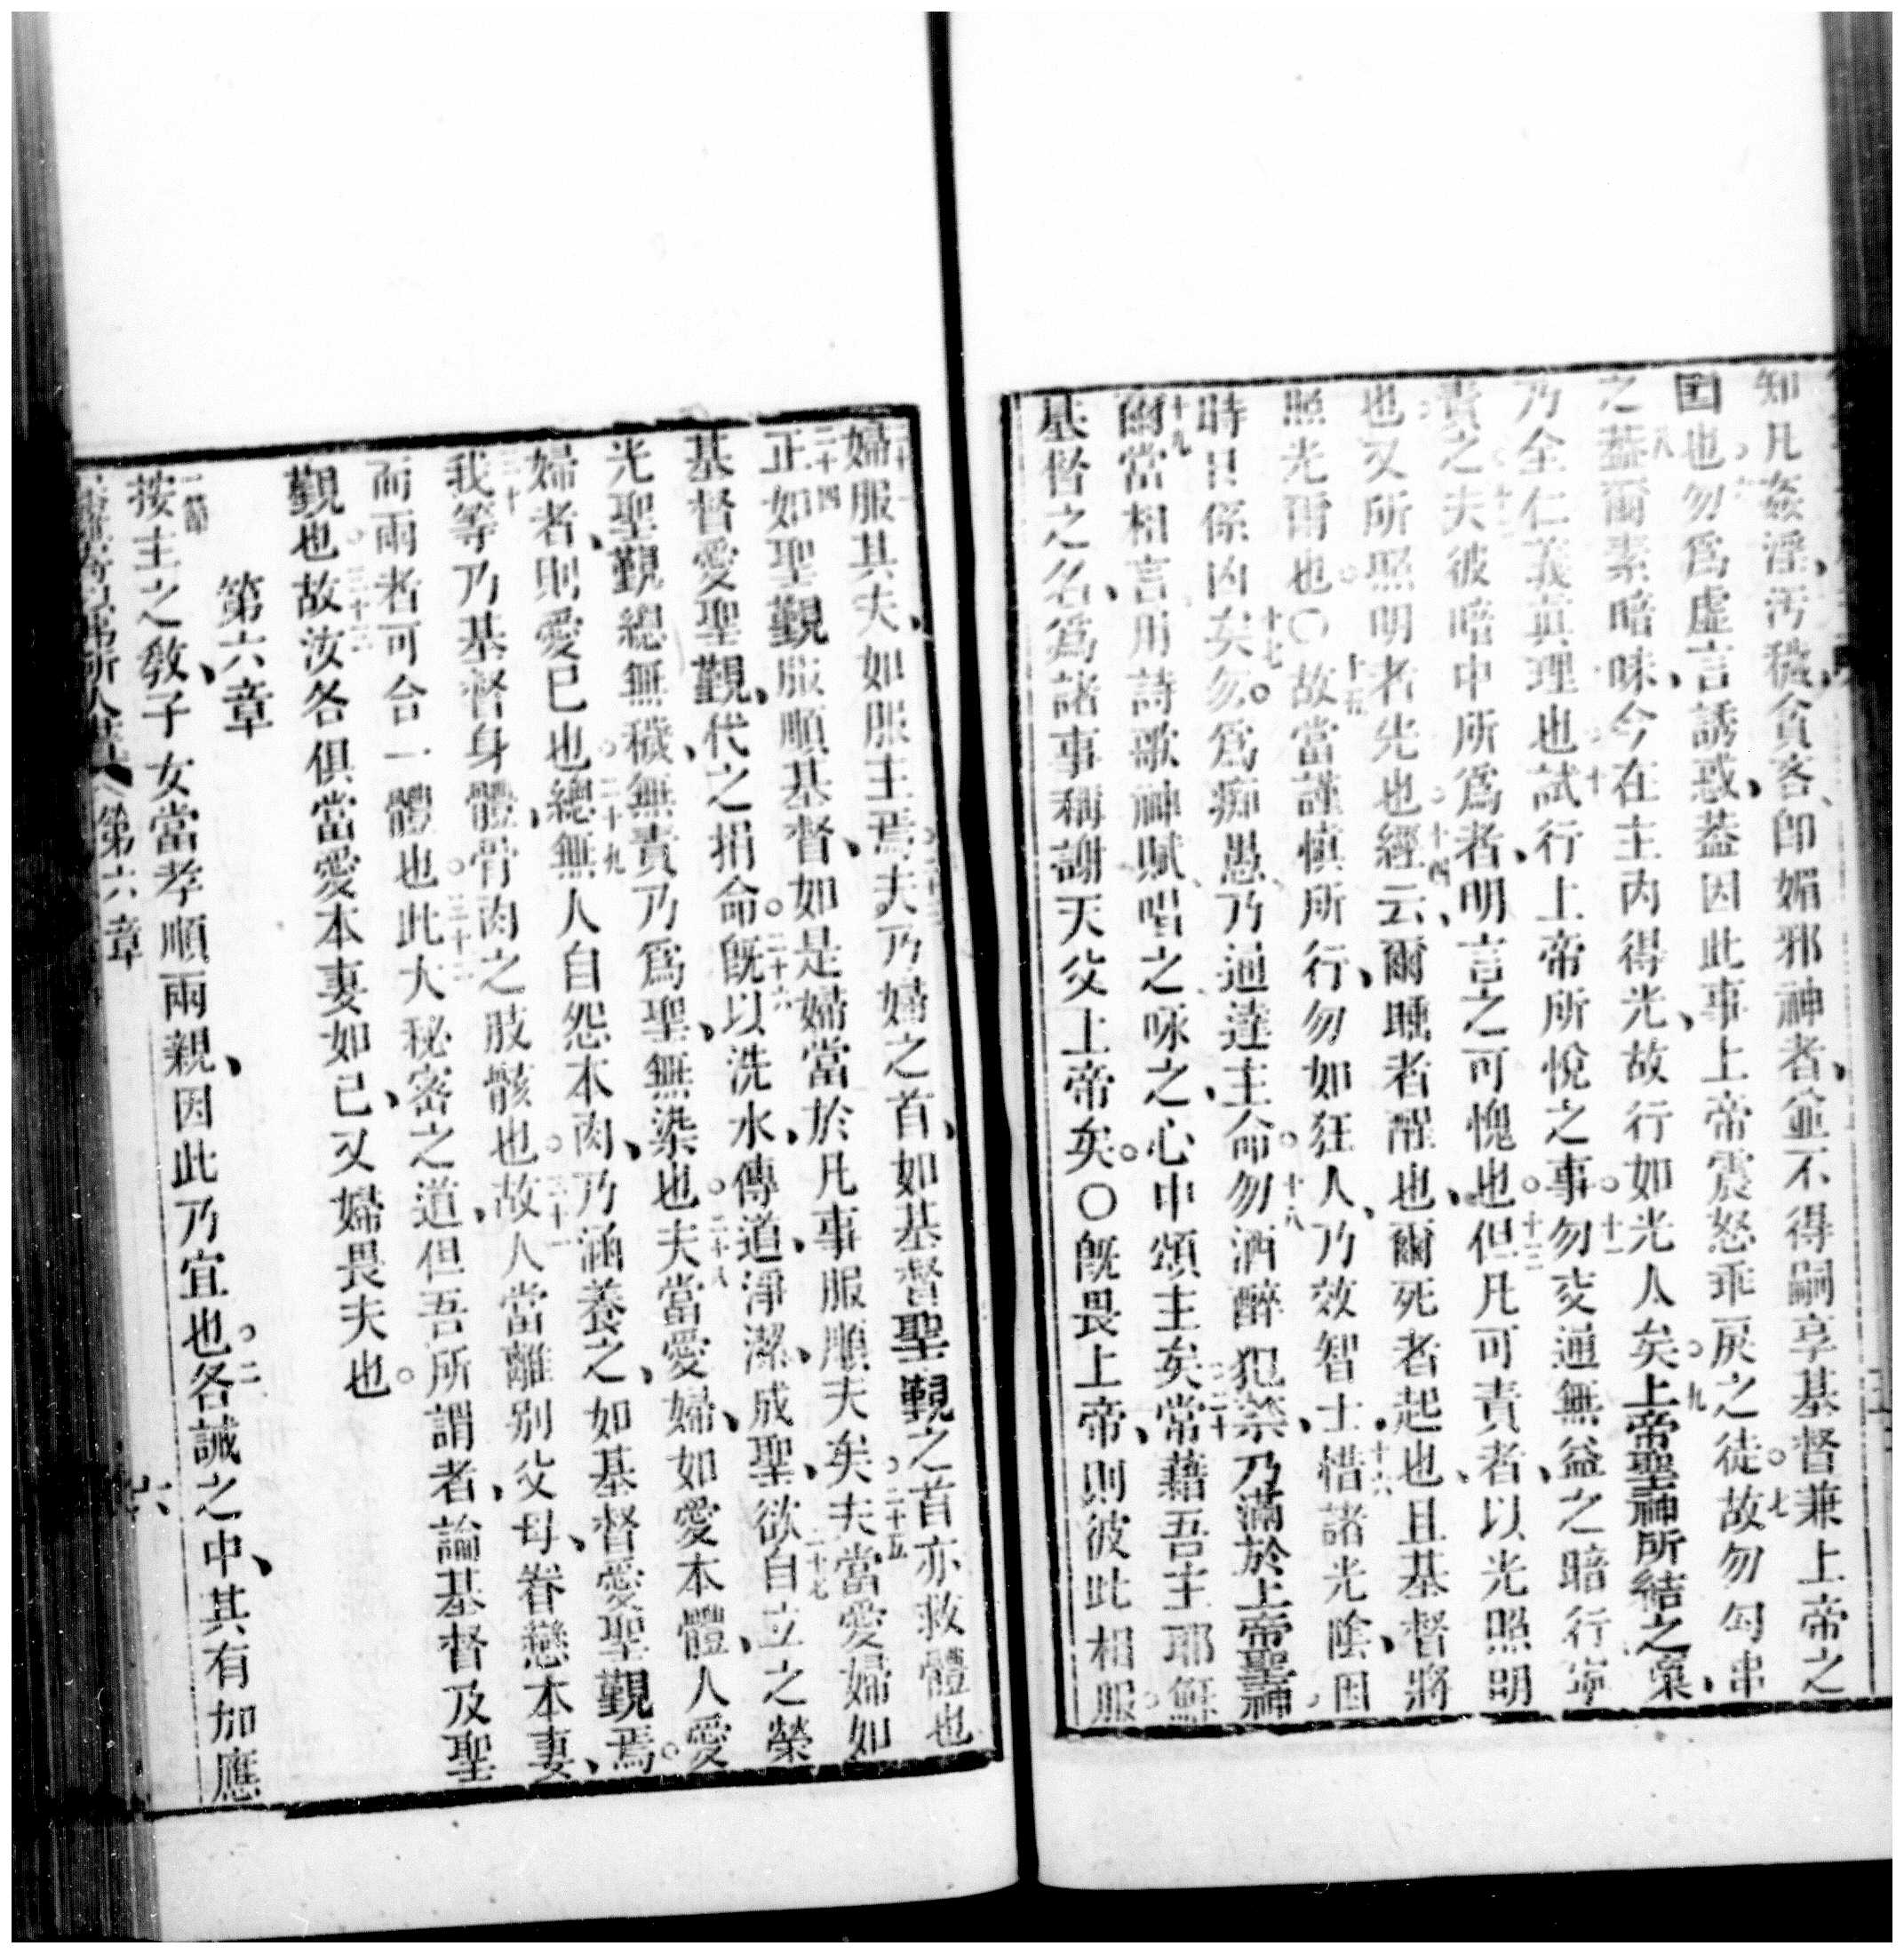 知凡姦淫、污穢、貪吝、卽媚邪神者、並不得嗣享基督兼上帝之
国也勿爲虛言誘惑、葢因此事上帝震怒乖戾之徒。七故勿勾串
之八葢爾素暗昧、今在主內得光、故行如光人矣。九上帝聖神所結之菓、
乃全仁義真理也十試行上帝所悅之事。十一勿交通無益之暗行寧
責之夫彼暗中所爲者、明言之可愧也。十三但凡可責者、以光照明
也又所照明者光也。十四經云、爾睡者醒也、爾死者起也、且基督將
照光爾也。〇十五故當謹慎所行、勿如狂人、乃效智士、十六惜諸光陰、因
時日係凶矣。十七勿爲痴愚乃通達主命。十八勿酒醉犯禁、乃滿於上帝聖神
十九爾當相言用詩歌神賦唱之咏之、心中頌主矣二十常藉吾主耶穌
基督之名、爲諸事稱謝天父上帝矣。〇旣畏上帝、則彼此相服。
婦服其夫、如服主焉。夫乃婦之首、如基督聖覲之首亦救體也
二十四正如聖覲服順基督、如是婦當於凡事服順夫矣。二十五夫當愛婦如
基督愛聖覲、代之捐命。二十六旣以洗水、傳道、淨潔、成聖、二十七欲自立之榮
光聖覲總無穢、無責乃爲聖、無染也。二十八夫當愛婦、如愛本體、人愛
婦者、則愛已也。二十九總無人自怨本肉、乃涵養之、如基督愛聖覲焉。
三十我等乃基督身體、骨肉之肢骸也。三十一故人當離別父母、眷戀本妻、
而兩者可合一體也。三十二此大秘密之道、但吾所謂者、論基督及聖
覲也。三十三故汝各俱當愛本妻如己、又婦畏夫也。
第六章
一節按主之教、子女當孝順兩親、因此乃宜也。二各誡之中、其有加應
第六章
六